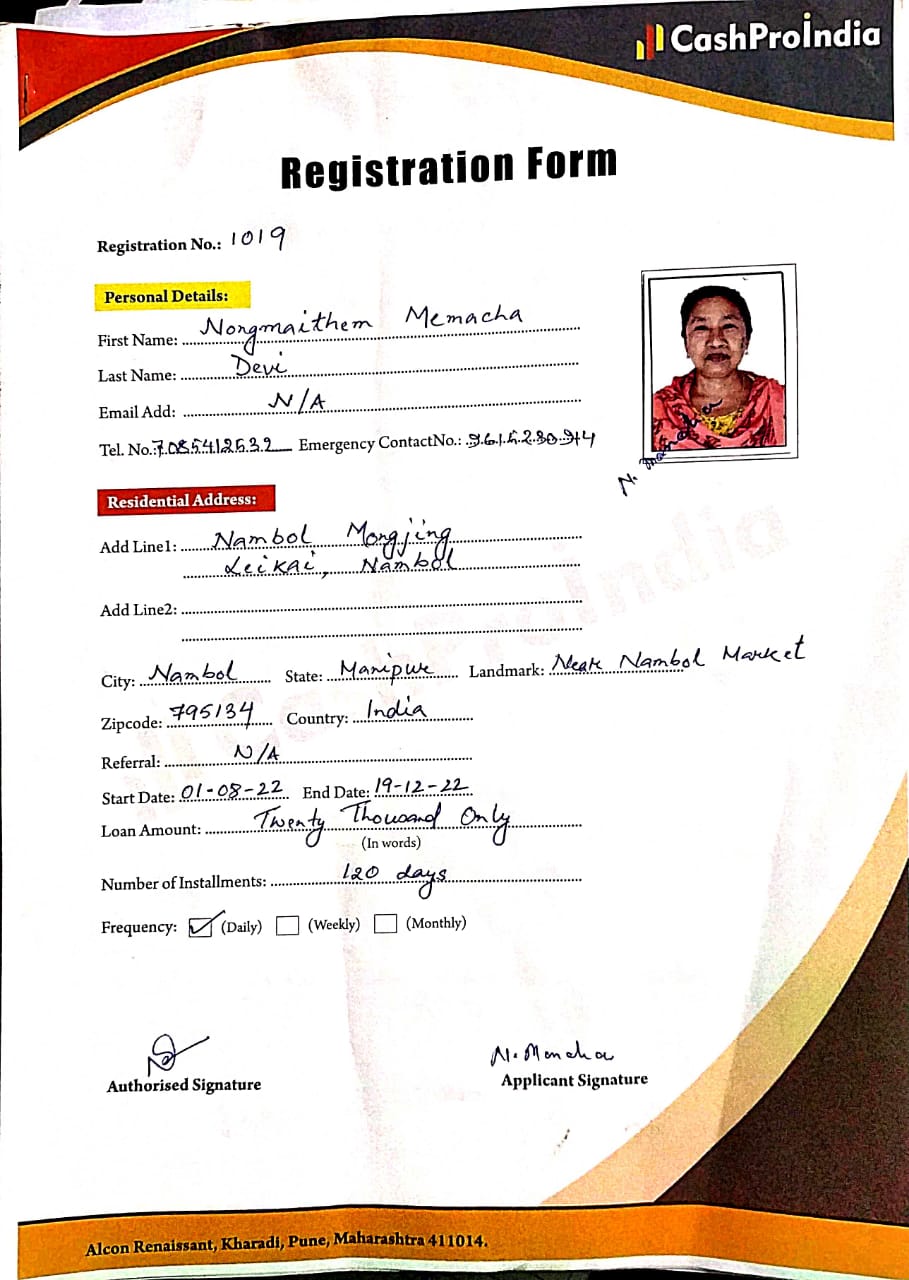 CashProIndia
Registration Form
Registration No.: 1019
Personal Details:
First Name: Nongmaithem Memacha
Last Name: Devi
Email Add: N/A
Tel. No.: 7085412532 Emergency ContactNo.:
N.
Residential Address:
Add Line1: Nambol Mongjing
Leikai, Nambol
Add Line2:
City: Nambol State: Manipur Landmark: Near Nambol Market
Zipcode: 795134 Country: India
Referral: N/A
Start Date: 01-08-22 End Date: 19-12-22
Loan Amount: Twenty Thousand Only
(In words)
Number of Installments: 120 days
Frequency: (Daily) (Weekly) (Monthly)
N.
Authorised Signature Applicant Signature
Alcon Renaissant, Kharadi, Pune, Maharashtra 411014.